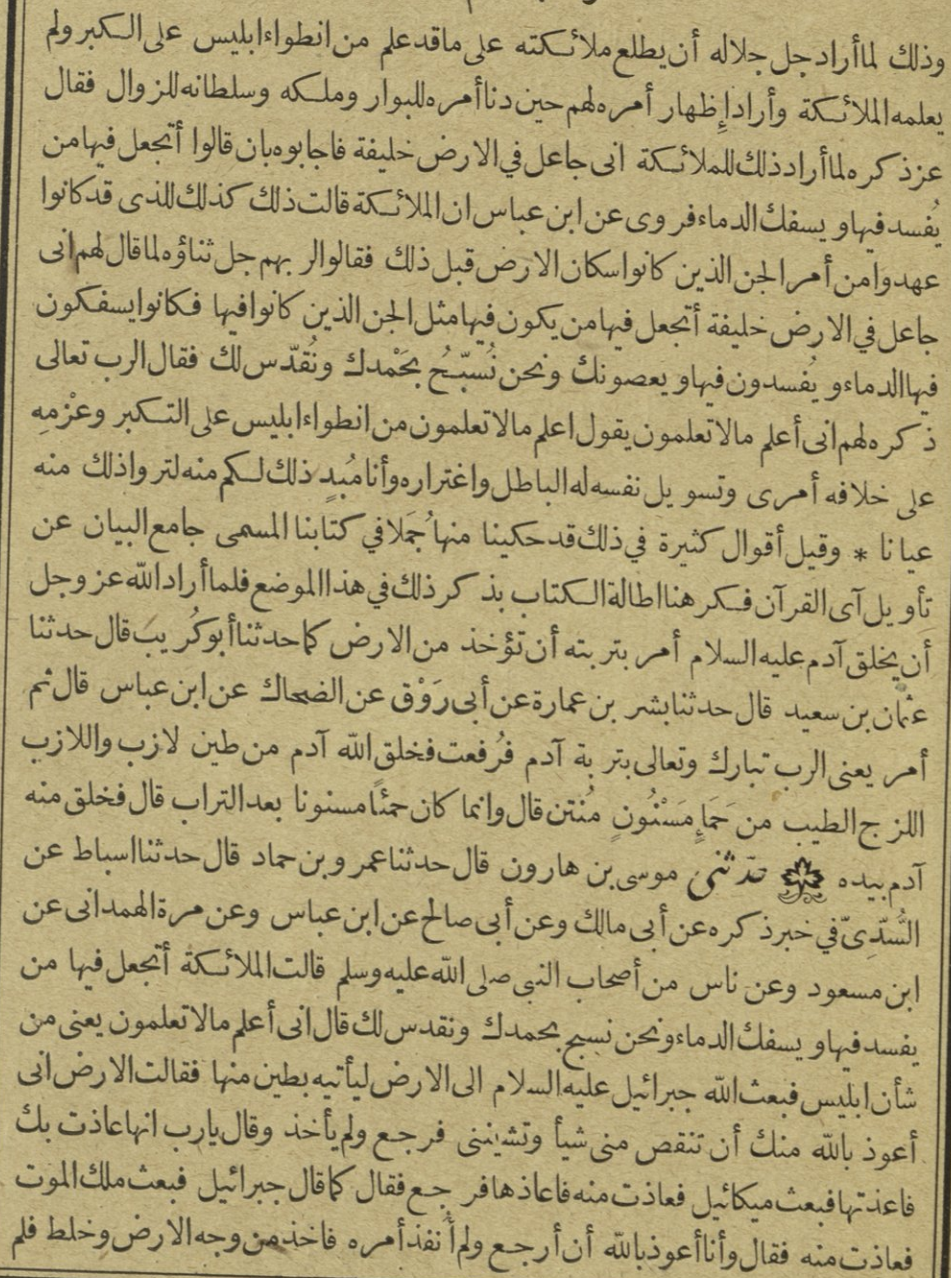 وذلك لما أراد جل جلاله أن يطلع ملائكته على ما قد علم من انطواء ابليس على الكبر ولم
يعلمه الملائكة وأراد إظهار أمره لهم حين دنا أمره للبوار وملكه وسلطانه للزوال فقال
عز ذكره لما أراد ذلك للملائكة انى جاعل في الارض خليفة فاجابوه بان قالوا أتجعل فيها من
يُفسد فيها ويسفك الدماء فروى عن ابن عباس ان الملائكة قالت ذلك كذلك للذى قد كانوا
عهدوا من أمر الجن الذين كانوا سكان الارض قبل ذلك فقالوا لربهم جل ثناؤه لما قال لهم انى
جاعل في الارض خليفة أتجعل فيها من يكون فيها مثل الجن الذين كانوا فيها فكانوا يسفكون
فيها الدماء ويُفسدون فيها ويعصونك ونحن نُسبّحُ بحَمْدك ونُقدّس لك فقال الرب تعالى
ذكره لهم انى أعلم مالا تعلمون يقول اعلم مالا تعلمون من انطواء ابليس على التكبر وعزْمِه
على خلافه أمرى وتسويل نفسه له الباطل واغتراره وأنا مُبدٍ ذلك لكم منه لتروا ذلك منه
عيانا * وقيل أقوال كثيرة في ذلك قد حكينا منها جُمَلا في كتابنا المسمى جامع البيان عن
تأويل آى القرآن فكرهنا اطالة الكتاب بذكر ذلك في هذا الموضع فلما أراد الله عز وجل
أن يخلق آدم عليه السلام أمر بتربته أن تؤخذ من الارض كما حدثنا أبو كُريب قال حدثنا
عثمان بن سعيد قال حدثنا بشر بن عمارة عن أبى رَوْق عن الضحاك عن ابن عباس قال ثم
أمر يعنى الرب تبارك وتعالى بتربة آدم فرُفعت فخلق الله آدم من طين لازب واللازب
اللزج الطيب من حَمَإٍ مَسْنُونٍ مُنتن قال وانما كان حمئًا مسنونا بعد التراب قال فخلق منه
آدم بيده حدثنى موسى بن هارون قال حدثنا عمرو بن حماد قال حدثنا اسباط عن
السُّدّىّ في خبر ذكره عن أبى مالك وعن أبى صالح عن ابن عباس وعن مرة الهمدانى عن
ابن مسعود وعن ناس من أصحاب النبى صلى الله عليه وسلم قالت الملائكة أتجعل فيها من
يفسد فيها ويسفك الدماء ونحن نسبح بحمدك ونقدس لك قال انى أعلم مالا تعلمون يعنى من
شأن ابليس فبعث الله جبرائيل عليه السلام الى الارض ليأتيه بطين منها فقالت الارض انى
أعوذ بالله منك أن تنقص منى شيأ وتشيننى فرجع ولم يأخذ وقال يارب انها عاذت بك
فاعذتها فبعث ميكائيل فعاذت منه فاعاذها فرجع فقال كما قال جبرائيل فبعث ملك الموت
فعاذت منه فقال وأنا أعوذ بالله أن أرجع ولم أنفذ أمره فاخذ من وجه الارض وخلط فلم